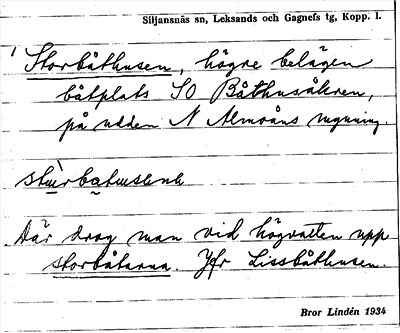 Siljansnäs sn, Leksands och Gagnefs tg, Kopp. l.
1
Storbåthusen, högre belägen
båtplats SO Båthusåkren,
på udden N Almoåns mynning.
Där drog man vid högvatten upp
storbåtarna. Jfr Lissbåthusen.
Bror Lindén 1934